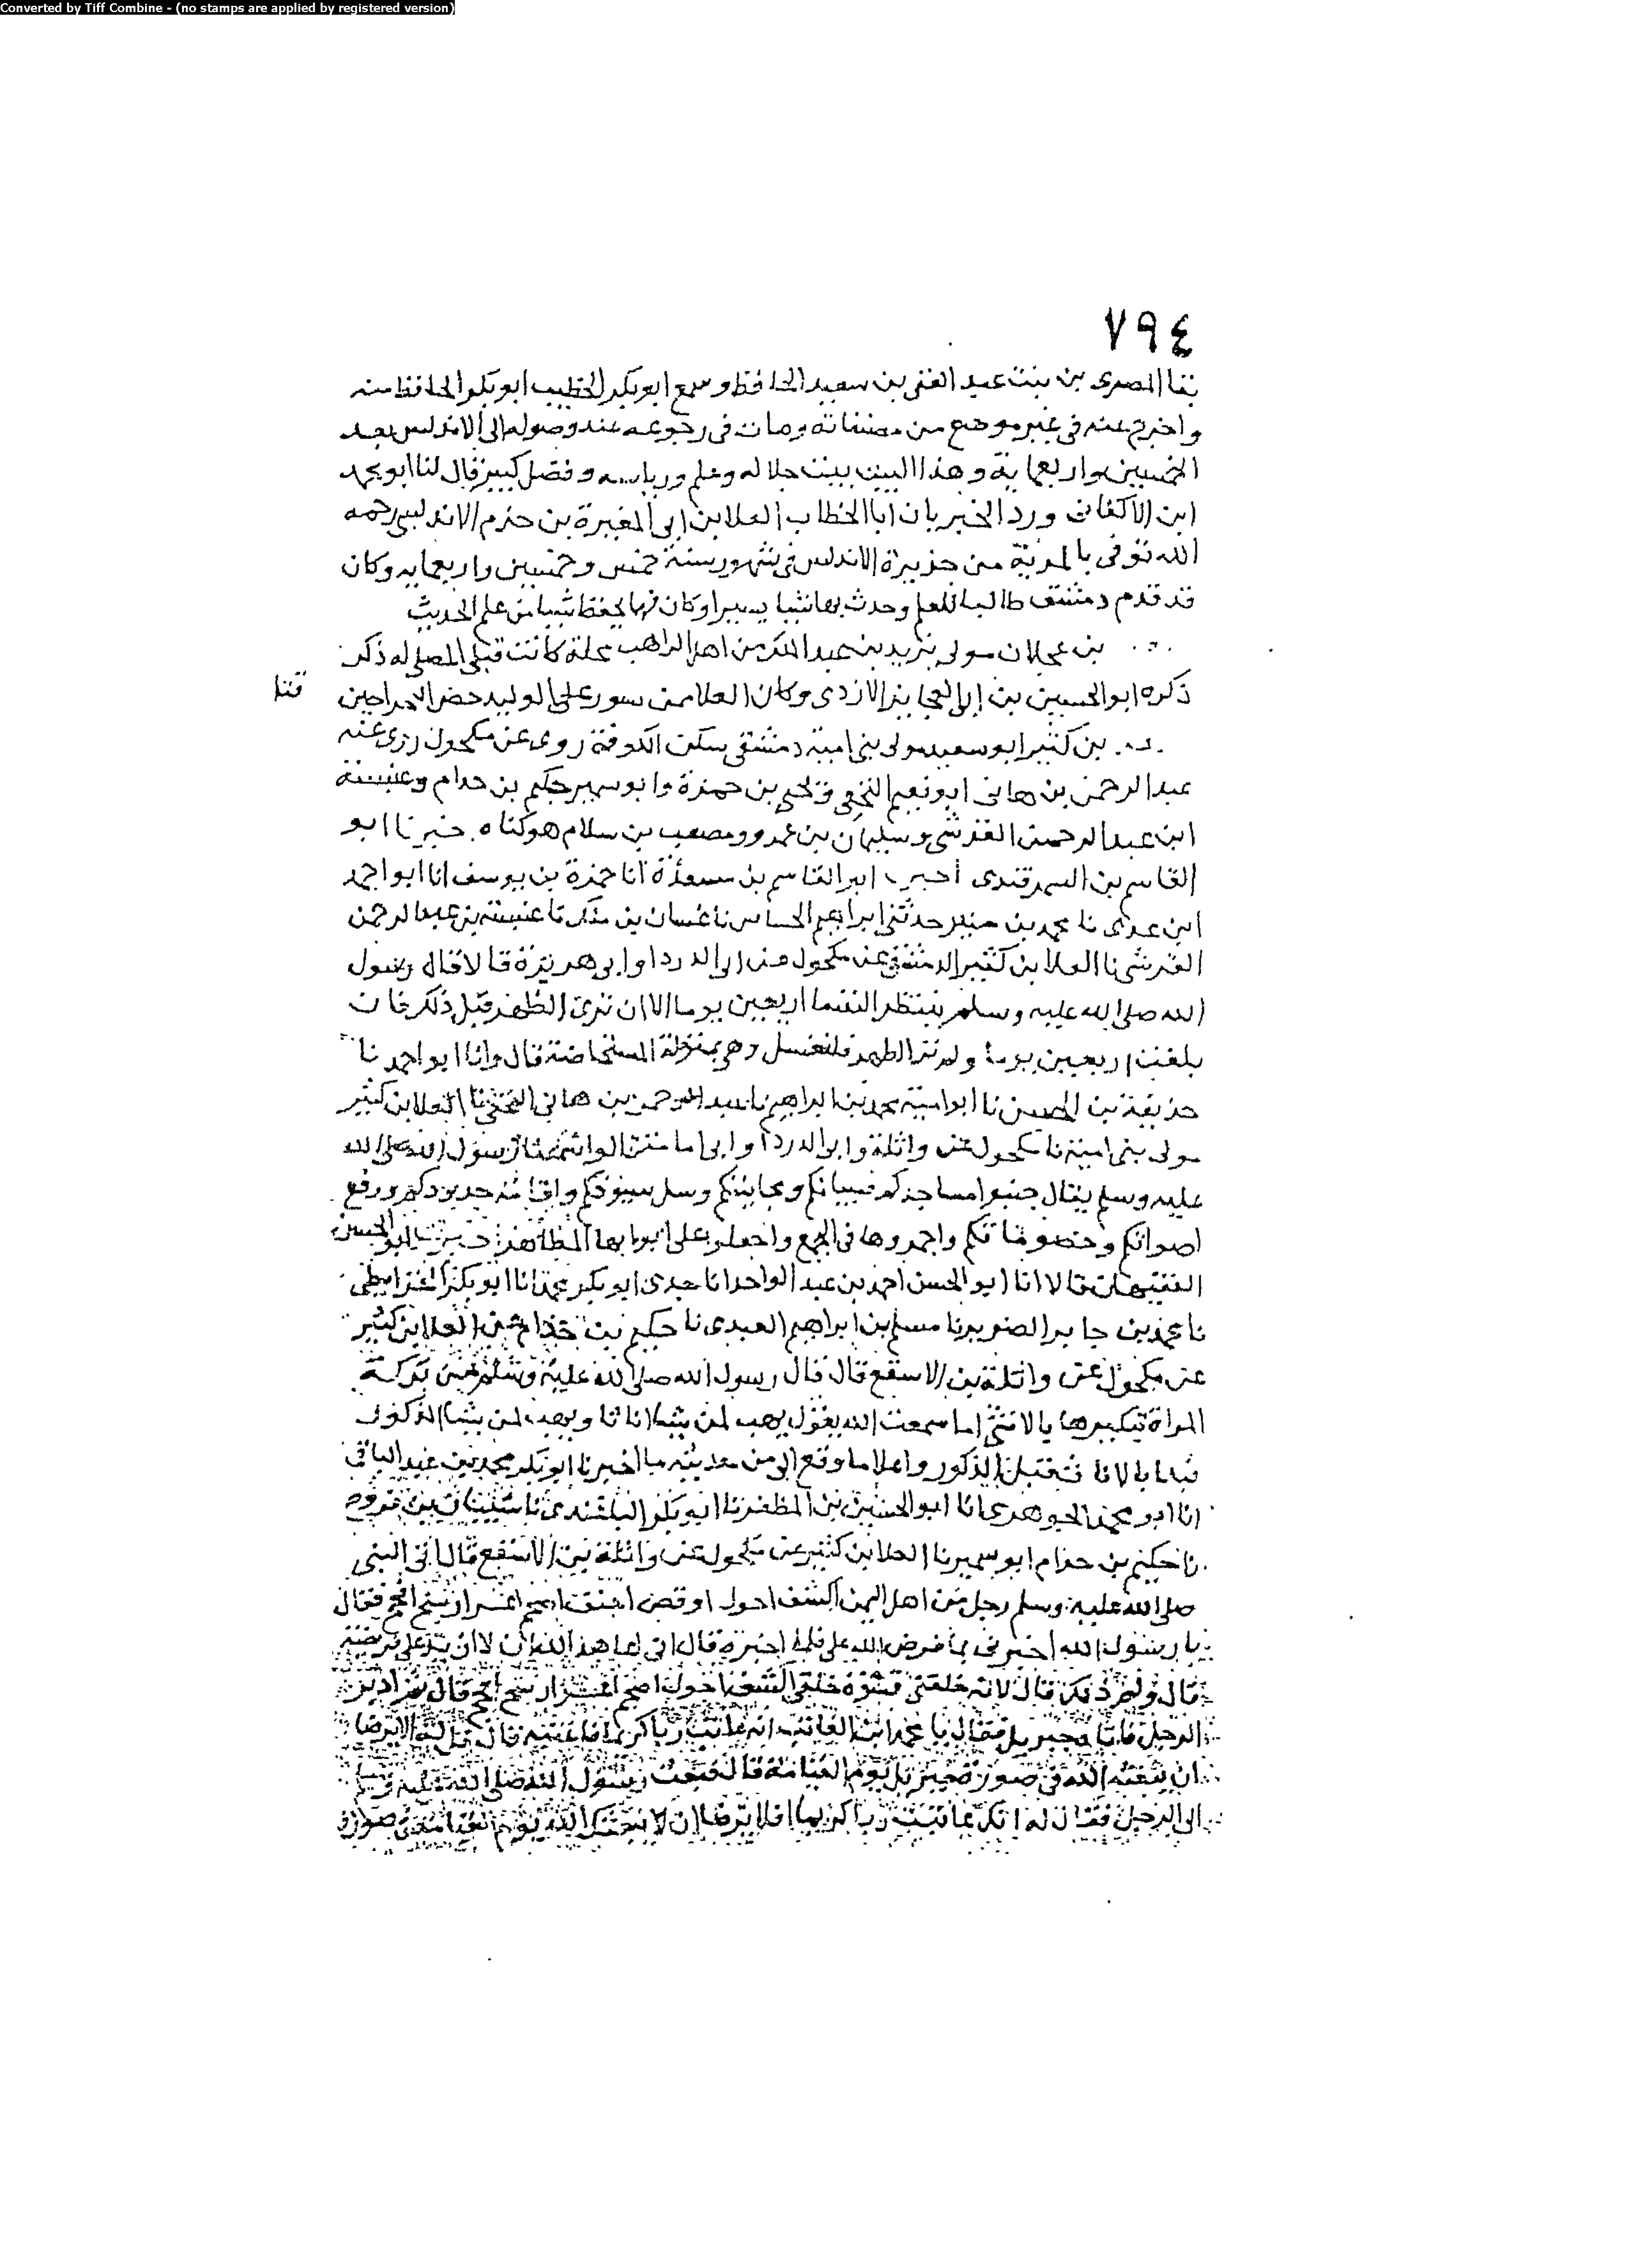 Converted by Tiff Combine - (no stamps are applied by registered version)
٧٩٤
بقا المصرى بن بنت عبد الغنى بن سعيد الحافظ وسمع ابو بكر الخطيب ابو بكر الحافظ منه
واخرج عنه فى غير موضع من مصنفاته ومات فى رجوعه عند وصوله الى الاندلس بعد
الخمسين واربعماية وهذا البيت بيت جلاله وعلم ورياسه وفضل كبير قال لنا ابو محمد
ابن الاكفانى ورد الخبر بان ابا الخطاب العلا بن ابى المغيرة بن حزم الاندلسى رحمه
الله توفى بالمرية من جزيرة الاندلس فى شهور سنة خمس وخمسين واربعمايه وكان
قد قدم دمشق طالبا للعلم وحدث بها شيا يسيرا وكان فهما يحفظ شيا من علم الحديث
بن عجلان مولى يزيد بن عبد الملك من اهل الراهب محلة كانت قبلى المصلى له ذكر
ذكره ابو الحسين بن ابى العجايز الازدى وكان العلا ممن سور على الوليد حضر الخراجين
قتنا
بن كثير ابو سعيد مولى بنى امية دمشقى سكن الكوفة روى عن مكحول روى عنه
عبد الرحمن بن هانى ابو نعيم النخعى ويحيى بن حمزة وابو سمير حكيم بن خدام وعنبسة
ابن عبد الرحمن القرشى وسليمان بن عمرو ومصعب بن سلام هو كناه خبرنا ابو
القاسم بن السمرقندى ابو القاسم بن مسعدة انا حمزة بن يوسف انا ابو احمد
ابن عدى نا محمد بن منير حدثنى ابراهيم نا غسان بن نا عنبسة بن عبد الرحمن
القرشى نا العلا بن كثير الدمشقى عن مكحول عن ابى الدردا وابى هريرة قالا قال رسول
الله صلى الله عليه وسلم تنتظر النفسا اربعين يوما الا ان ترى الطهر قبل ذلك فان
بلغت اربعين يوما ولم تر الطهر فلتغتسل وهى بمنزلة المستحاضة قال وانا ابو احمد نا
حذيفة بن الحسن نا ابو امية محمد بن ابراهيم نا عبد الرحمن بن هانى النخعى نا العلا بن كثير
مولى بنى امية نا مكحول عن واثلة وابى الدردا وابى امامة قالوا سمعنا رسول الله صلى الله
عليه وسلم يقول جنبوا مساجدكم صبيانكم ومجانينكم وسل سيوفكم واقامة حدودكم ورفع
اصواتكم وخصوماتكم واجمروها فى الجمع واجعلوا على ابوابها المطاهر ابو الحسن
الفقيهان قالا انا ابو الحسن احمد بن عبد الواحد انا جدى ابو بكر محمد انا ابو بكر الخرايطى
نا محمد بن جابر الضرير نا مسلم بن ابراهيم العبدى نا حكيم بن خذام عن العلا بن كثير
عن مكحول عن واثلة بن الاسقع قال قال رسول الله صلى الله عليه وسلم من بركة
المراة تبكيرها بالانثى اما سمعت الله يقول يهب لمن يشا اناثا ويهب لمن يشا الذكور
فبدا بالاناث قبل الذكور واعلا ما وقع الى من حديثه ما اخبرنا ابو بكر محمد بن عبد الباقى
انا ابو محمد الجوهرى انا ابو الحسين بن المظفر نا ابو بكر الباغندى نا شيبان بن فروخ
نا حكيم بن حزام ابو سمير نا العلا بن كثير عن مكحول عن واثلة بن الاسقع قال اتى النبى
صلى الله عليه وسلم رجل من اهل اليمن اكشف احول اوقص احنف اصحم اعسر ارسح افحج فقال
يا رسول الله اخبرنى بما فرض الله على فلما اخبره قال انى اعاهد الله ان لا ازيد على فريضته
قال ولم ذلك قال لانه خلقنى فشوه خلقى اكشف احول اصحم اعسر ارسح افحج قال ثم ادبر
الرجل فاتاه جبريل فقال يا محمد اين العاتب انه عاتب ربا كريما فاعتبه قال قل له الا يرضا
ان يبعثه الله فى صورة جبريل يوم القيامة قال فبعث رسول الله صلى الله عليه وسلم
الى الرجل فقال له انك عاتبت ربا كريما افلا ترضا ان يبعثك الله يوم القيامة فى صورة